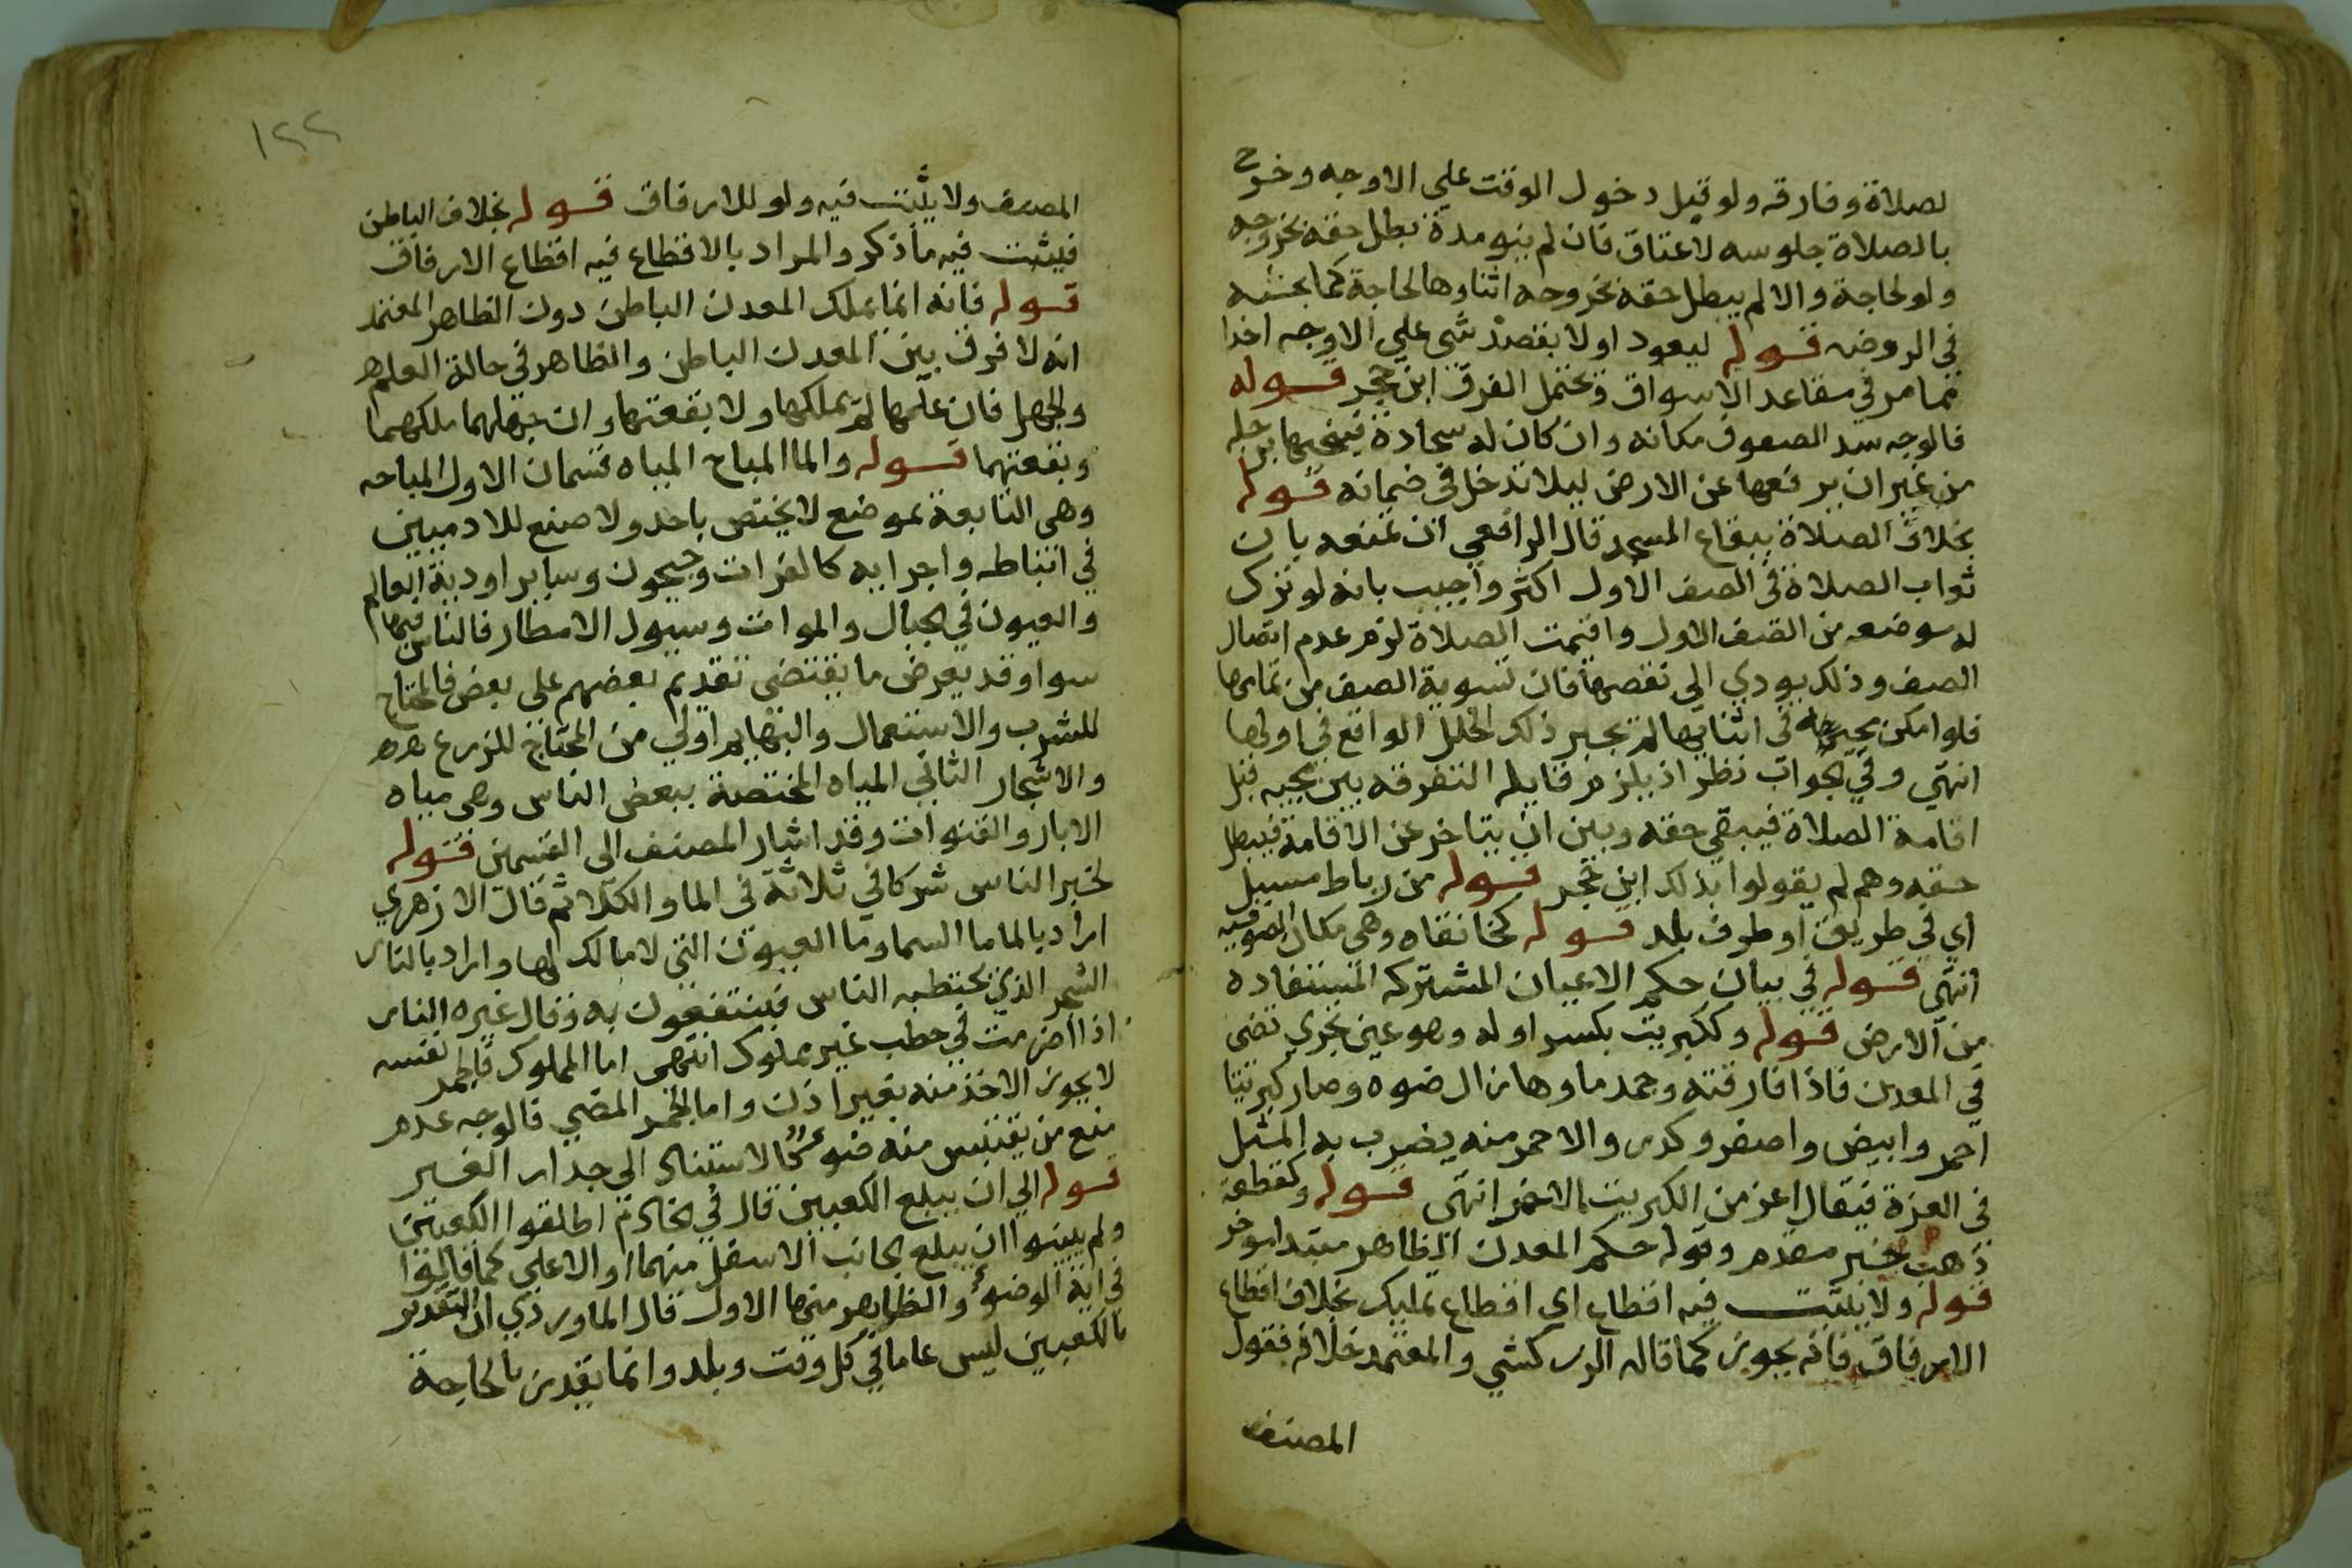 لصلاة وفارقه ولو قبل دخول الوقت علي الاوجه وخرج
بالصلاة جلوسه لاعتاق فان لم ينو مدة بطل حقه بخروجه
ولو لحاجة والا لم يبطل حقه بخروجه اثناوها لحاجة كما بحثه
في الروضه قوله ليعود او لا بقصد شي علي الاوجه اخذا
مما مر في مقاعد الاسواق ويحتمل الفرق ابن حجر قوله
فالوجه سد الصفوف مكانه وان كان له سجادة فينحيها برجله
من غير ان يرفعها عن الارض ليلا تدخل في ضمانه قوله
بخلاف الصلاة ببقاع المسجد قال الرافعي ان تمنعه بان
ثواب الصلاة في الصف الاول اكثر واجيب بانه لو ترك
له موضعه من الصف الاول واقيمت الصلاة لزم عدم اتصال
الصف وذلك يودي الي نقصها فان تسوية الصف من تمامها
فلو امكن مجيه في اثنايها لم يجبر ذلك الخلل الواقع في اولها
انتهي وفي الجواب نظر اذ يلزم قايله التفرقه بين مجيه قبل
اقامة الصلاة فيبقي حقه وبين ان يتاخر عن الاقامة فيبطل
حقه وهم لم يقولوا بذلك ابن حجر قوله من رباط مسبل
اي في طريق او طرف بلد قوله كخانقاه وهي مكان الصوفيه
انتهي قوله في بيان حكم الاعيان المشتركه المستفاده
من الارض قوله وككبريت بكسر اوله وهو عين تجري تضي
في المعدن فاذا فارقته وجمد ماوها زال ضوه وصار كبريتا
احمر وابيض واصفر وكدر والاحمر منه يضرب به المثل
في العزة فيقال اعز من الكبريت الاحمر انتهي قوله وكقطعة
ذهب خبر مقدم وقوله حكم المعدن الظاهر مبتدا موخر
قوله ولا يثبت فيه اقطاع اي اقطاع تمليك بخلاف اقطاع
الارفاق فانه يجوز كما قاله الزركشي والمعتمد خلافه فقول
المصنف
١٢٢
المصنف ولا يثبت فيه ولو للارفاق قوله بخلاف الباطن
فيثبت فيه ما ذكر والمراد بالاقطاع فيه اقطاع الارفاق
قوله فانه انما يملك المعدن الباطن دون الظاهر المعتمد
انه لا فرق بين المعدن الباطن والظاهر في حالة العلم
والجهل فان علمها لم يملكها ولا بقعتها وان جهلهما ملكهما
وبقعتهما قوله والما المباح المياه قسمان الاول المباحه
وهي النابعة بموضع لا يختص باحد ولا صنع للادميين
في انباطه واجرايه كالفرات وجيحون وساير اودية العالم
والعيون في الجبال والموات وسيول الامطار فالناس فيها
سوا وقد يعرض ما يقتضي تقديم بعضهم علي بعض فالمحتاج
للشرب والاستعمال والبهايم اولي من المحتاج للزرع
والاشجار الثاني المياه المختصة ببعض الناس وهي مياه
الابار والقنوات وقد اشار المصنف الي القسمين قوله
لخبر الناس شركا في ثلاثة في الما والكلا ثم قال الازهري
اراد بالما ما السما وما العيون التي لا مالك لها واراد بالنار
الشجر الذي يحتطبه الناس فينتفعون به وقال غيره النار
اذا اضرمت في حطب غير مملوك انتهي اما المملوك فالجمر نفسه
لا يجوز الاخذ منه بغير اذن واما الجمر المضي فالوجه عدم
منع من يقتبس منه ضو كالاستناد الي جدار الغير
قوله الي ان يبلغ الكعبين قال في الخادم اطلقوا الكعبين
ولم يبينوا ان يبلغ الجانب الاسفل منهما او الاعلي كما قالوا
في اية الوضوء والظاهر منها الاول قال الماوردي ان التقدير
بالكعبين ليس عاما في كل وقت وبلد وانما يقدر بالحاجة